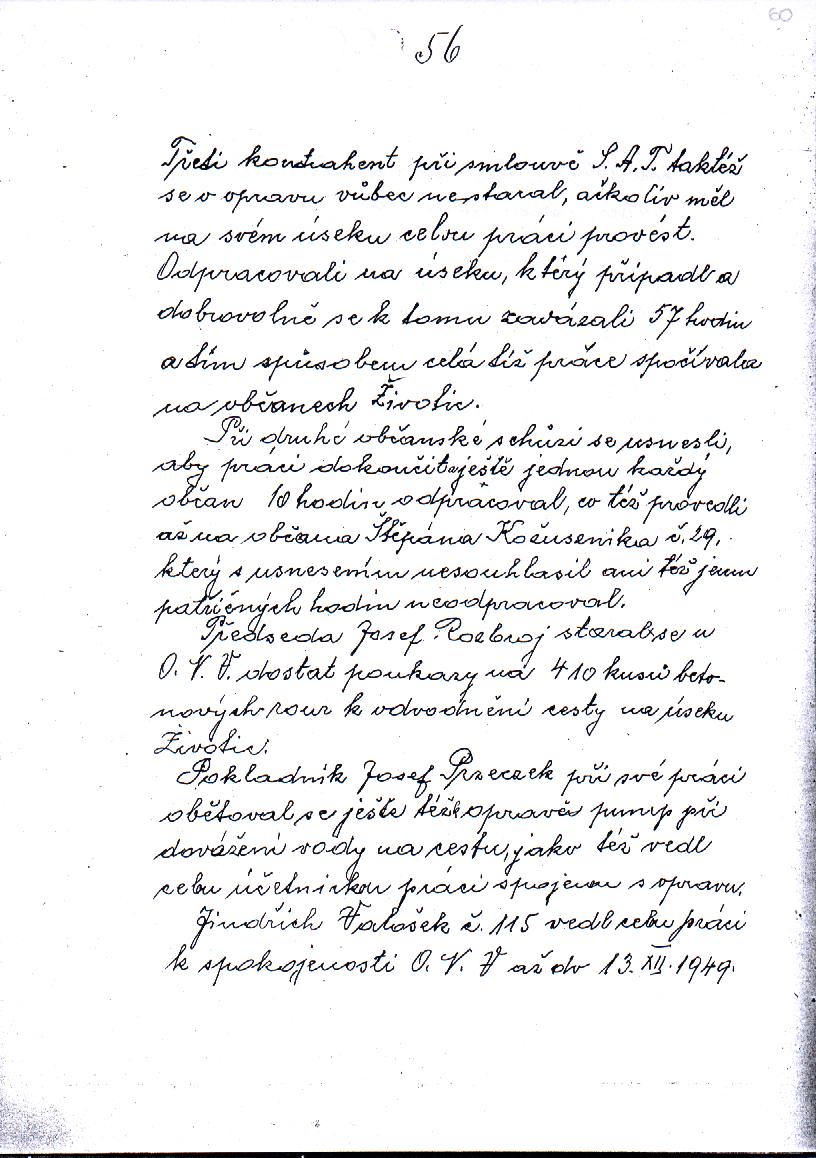 60
56
Třetí kontrahent při smlouvě S. A. T. taktéž
se o opravu vůbec nestaral, ačkolív měl
na svém úseku celou práci provést.
Odpracovali na úseku, který připadl a
dobrovolně se k tomu zavázali 57 hodin
a tím způsobem celá tíž práce spočívala
na občanech Životic.
Při druhé občanské schůzi se usnesli,
aby práci dokončit ještě jednou každý
občan 10 hodin odpracoval, co též provedli
až na občana Štěpána Kožusenika č. 29,
který s usnesením nesouhlasil ani též jemu
patřičných hodin neodpracoval.
Předseda Josef Rozbroj staral se u
O. N. V. dostat poukazy na 410 kusů beto-
nových rour k odvodnění cesty na úseku
Životic.
Pokladník Josef Przeczek při své práci
obětoval se ještě též opravě pump při
dovážení vody na cestu, jako též vedl
celou účetnickou práci spojenou s opravou.
Jindřich Valošek č. 115 vedl celou práci
k spokojenosti O. N. V až do 13. XII. 1949.